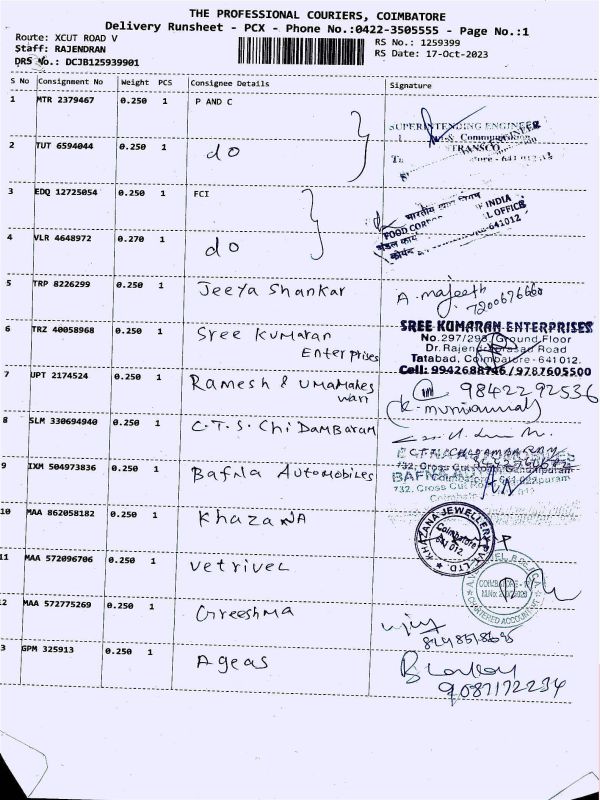 THE PROFESSIONAL COURIERS, COIMBATORE
Delivery Runsheet - PCX - Phone No.:0422-3505555 - Page No.:1
Route: XCUT ROAD V
RS No.: 1259399
Staff: RAJENDRAN
RS Date: 17-Oct-2023
DRS No.: DCJB125939901
S No Consignment No Weight PCS Consignee Details Signature
1 MTR 2379467 0.250 1 P AND C
SUPERINTENDING ENGINEER
TRANSCO
2 TUT 6594044 0.250 1 do
3 EDQ 12725054 0.250 1 FCI
INDIA
L OFFICE
4 VLR 4648972 0.270 1 do
5 TRP 8226299 0.250 1 Jeeya Shankar
A. majeeth
7200676660
6 TRZ 40058968 0.250 1 Sree Kumaran
Enterprises
SREE KUMARAN ENTERPRISES
No.297/298, Ground Floor
Dr.Rajendraprasad Road
Tatabad, Coimbatore - 641 012.
Cell: 9942688746 / 9787605500
7 UPT 2174524 0.250 1 Ramesh & umamahes
wari
9842292536
8 SLM 330694940 0.250 1 C.T.S. Chidambaram
9 IXM 504973836 0.250 1 Bafna Automobiles
732, Cross Cut Road
10 MAA 862058182 0.250 1 Khazana
KHAZANA JEWELLERY PVT. LTD.
Coimbatore
641 012
11 MAA 572096706 0.250 1 vetrivel
CHARTERED ACCOUNTANT
2 MAA 572775269 0.250 1 Greeshma
3 GPM 325913 0.250 1 Ageas
9087172234